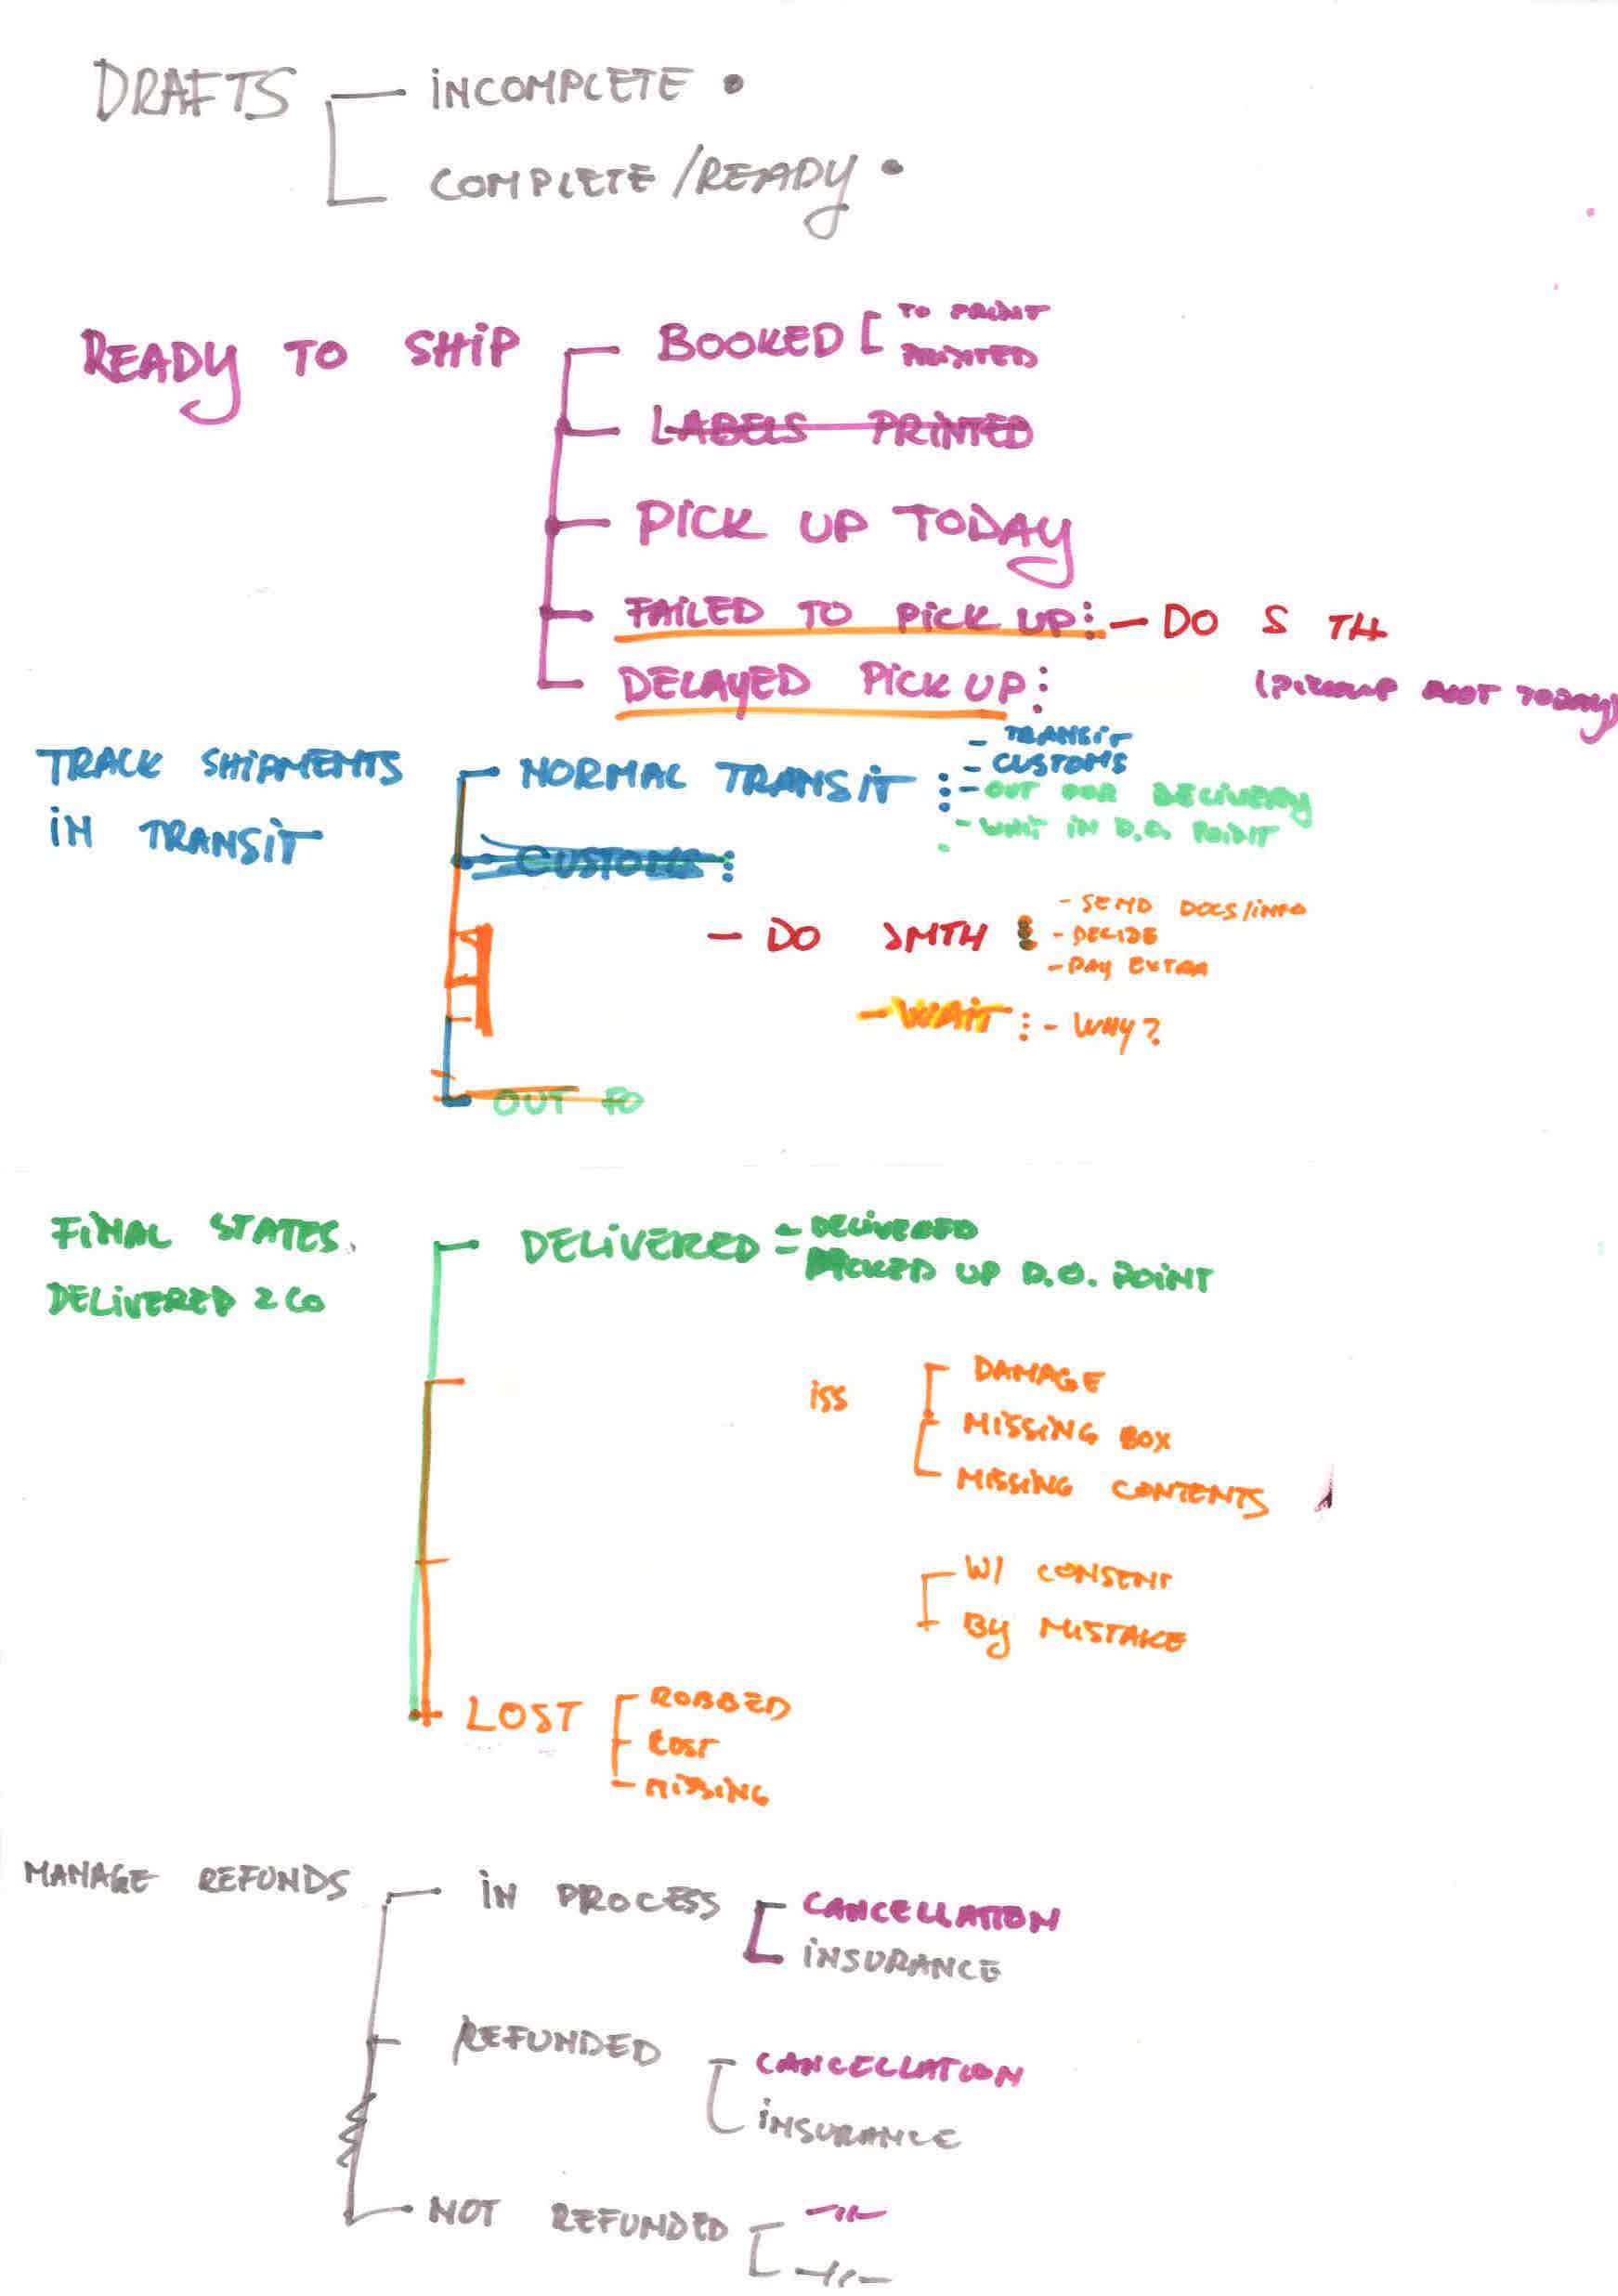 DRAFTS
INCOMPLETE
COMPLETE/READY
READY TO SHIP
BOOKED
TO PRINT
PRINTED
LABELS PRINTED
PICK UP TODAY
FAILED TO PICK UP: - DO S TH
DELAYED PICK UP:
(PICKUP NOT TODAY)
TRACK SHIPMENTS
IN TRANSIT
NORMAL TRANSIT
- TRANSIT
- CUSTOMS
- OUT FOR DELIVERY
- WAIT IN D.O. POINT
CUSTOMS
- DO SMTH
- SEND DOCS/INFO
- DECIDE
- PAY EXTRA
- WAIT
- WHY?
OUT FO
FINAL STATES.
DELIVERED & CO
DELIVERED
- DELIVERED
- PICKED UP D.O. POINT
iSS
DAMAGE
MISSING BOX
MISSING CONTENTS
W/ CONSENT
BY MISTAKE
LOST
ROBBED
LOST
MISSING
MANAGE REFUNDS
IN PROCESS
CANCELLATION
INSURANCE
REFUNDED
CANCELLATION
INSURANCE
NOT REFUNDED
-//-
-//-